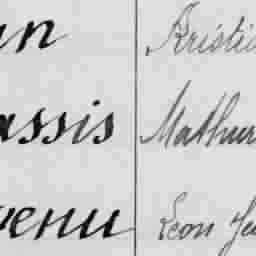 an Kristi
assis Mathur
venu Leon Je